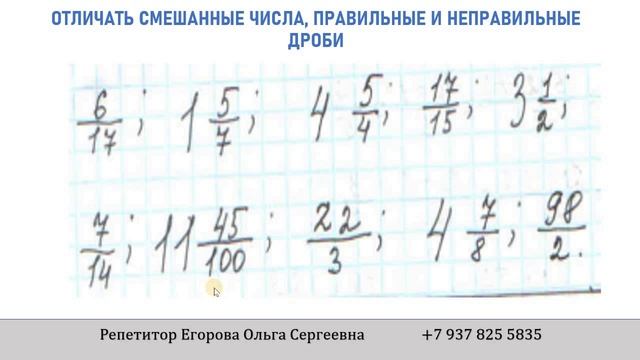 ОТЛИЧАТЬ СМЕШАННЫЕ ЧИСЛА, ПРАВИЛЬНЫЕ И НЕПРАВИЛЬНЫЕ
ДРОБИ
6/17; 1 5/7; 4 5/4; 17/15; 3 1/2;
7/14; 11 45/100; 22/3; 4 7/8; 98/2.
Репетитор Егорова Ольга Сергеевна +7 937 825 5835